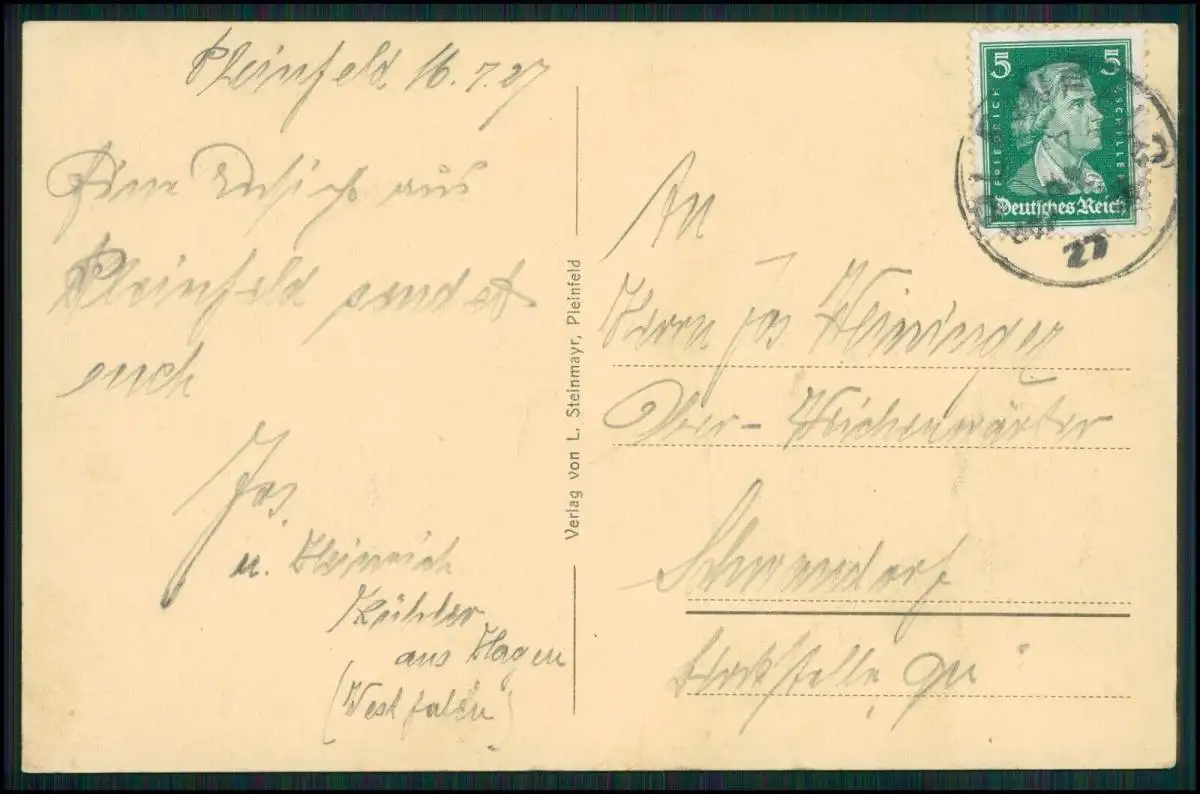 Pleinfeld 16.7.27
Eine Ansicht aus
Pleinfeld sendet
euch
Jos.
u. Heinrich
Köhler
aus Hagen
(Westfalen)
Verlag von L. Steinmayr, Pleinfeld
5 5
FRIEDRICH SCHILLER
Deutsches Reich
27
An
Herrn Jos Weininger
Ober-Weichenwärter
Schwandorf
Blockstelle